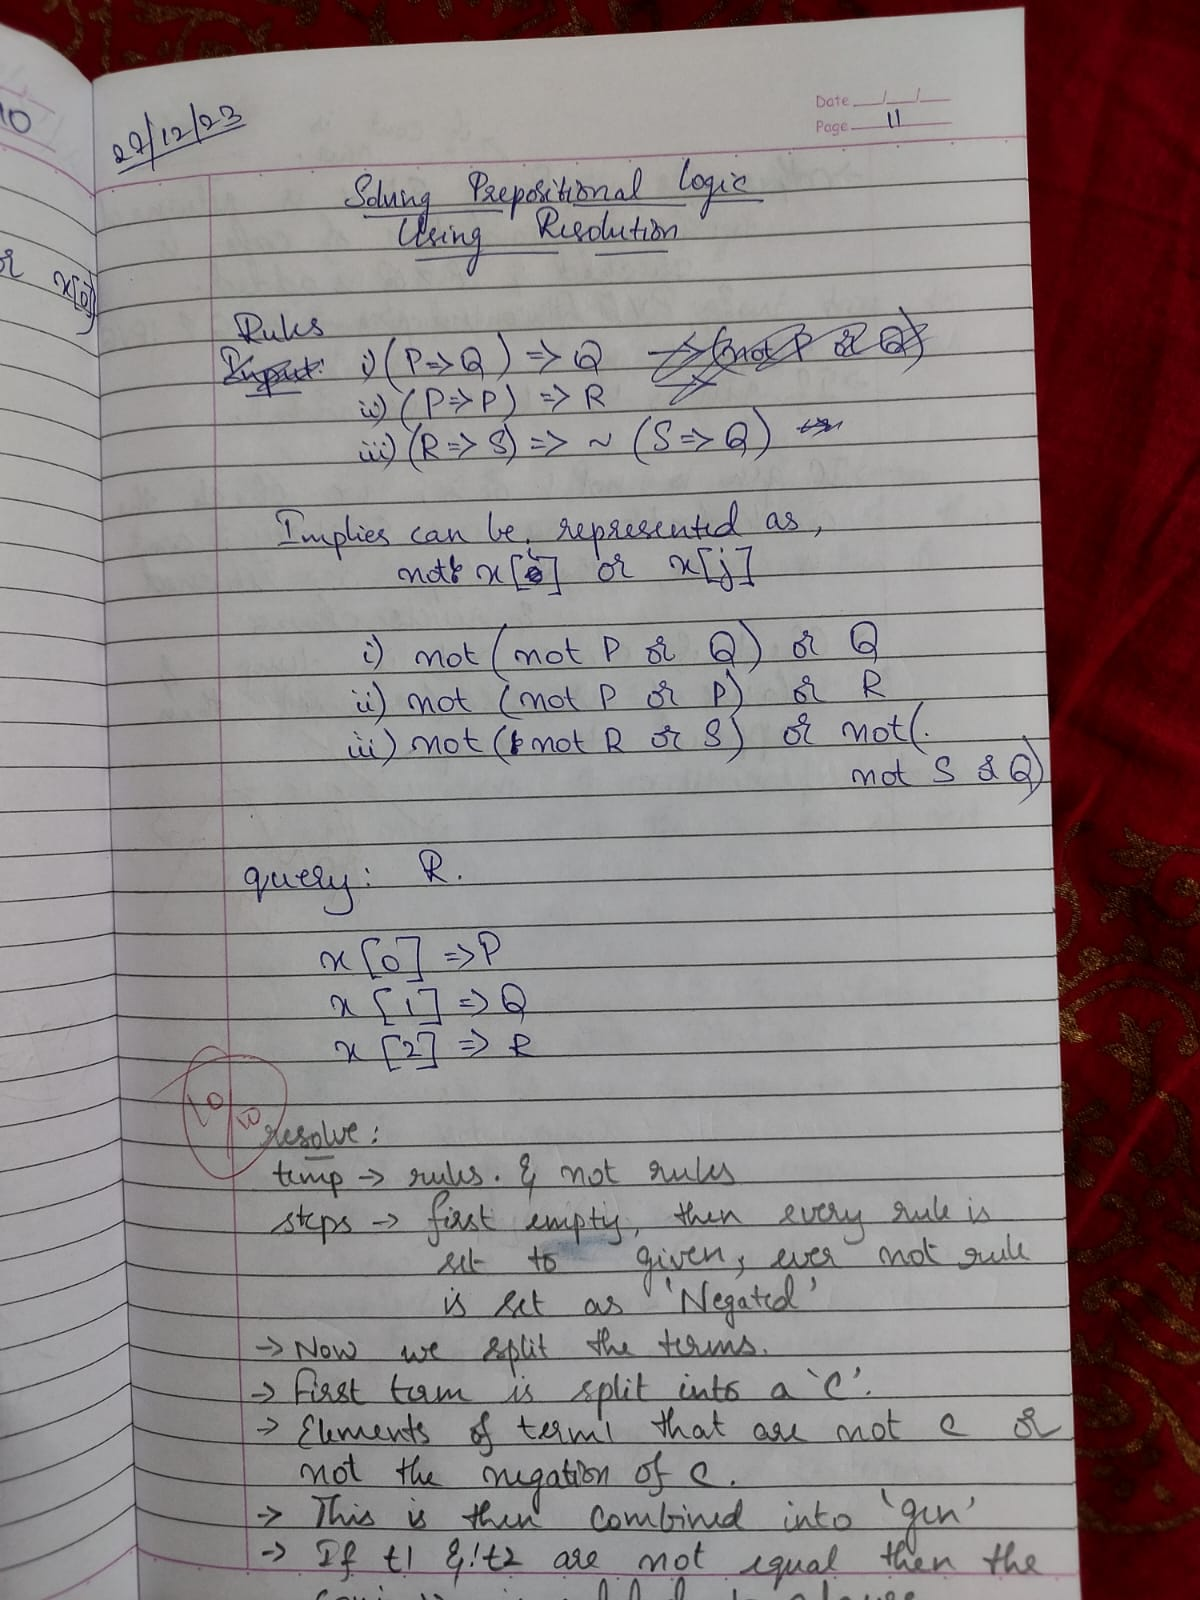 10
or x[i]
27/12/23
Date / /
Page 11
Solving Prepositional Logic
Using Resolution
Rules
Input: i) (P=>Q) => Q
ii) (P=>P) => R
iii) (R=>S) => ~ (S=>Q)
Implies can be, represented as,
not x[i] or x[j]
i) not (not P or Q) or Q
ii) not (not P or P) or R
iii) not (not R or S) or not(.
not S or Q)
query: R.
x[0] => P
x[1] => Q
x[2] => R
10/10
resolve:
temp -> rules. & not rules
steps -> first empty, then every rule is
set to given, ever not rule
is set as 'Negated'
-> Now we split the terms.
-> First term is split into a 'C'.
-> Elements of term1 that are not c or
not the negation of c.
-> This is then combined into 'gen'
-> If t1 & t2 are not equal then the